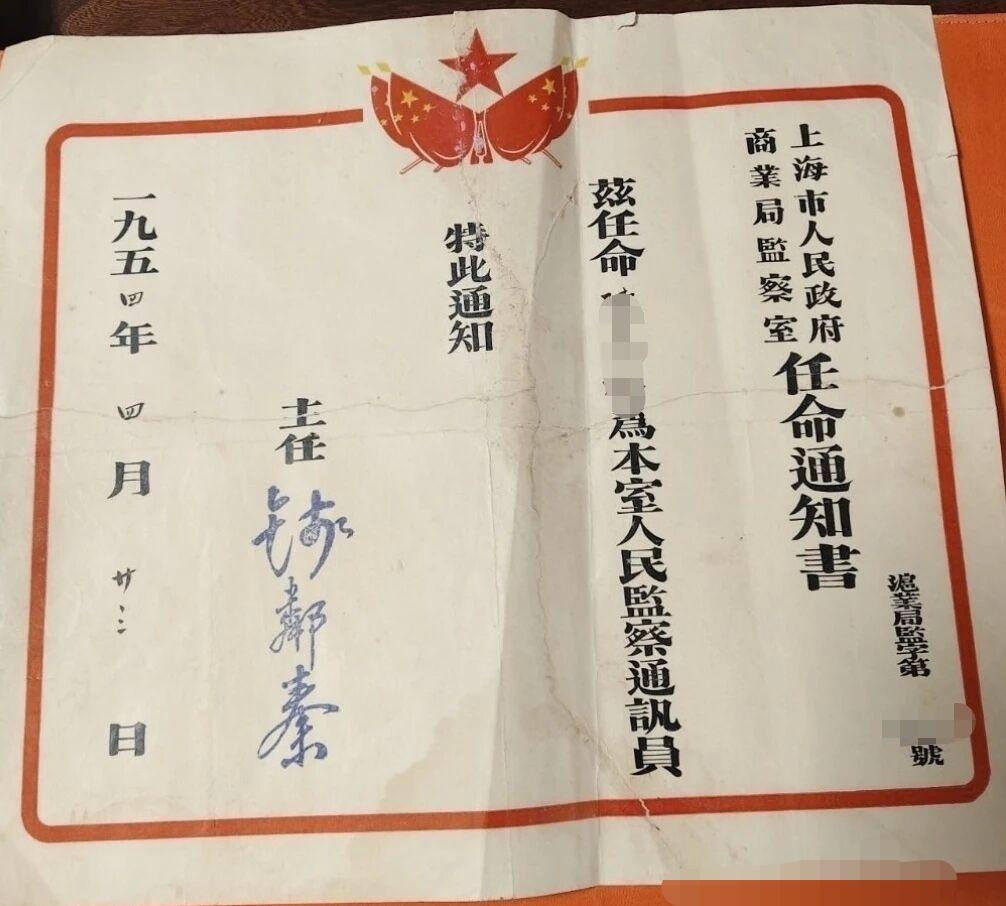 上海市人民政府
商業局監察室
任命通知書
滬業局監字第
號
茲任命
爲本室人民監察通訊員
特此通知
主任
一九五四年四月廿三日